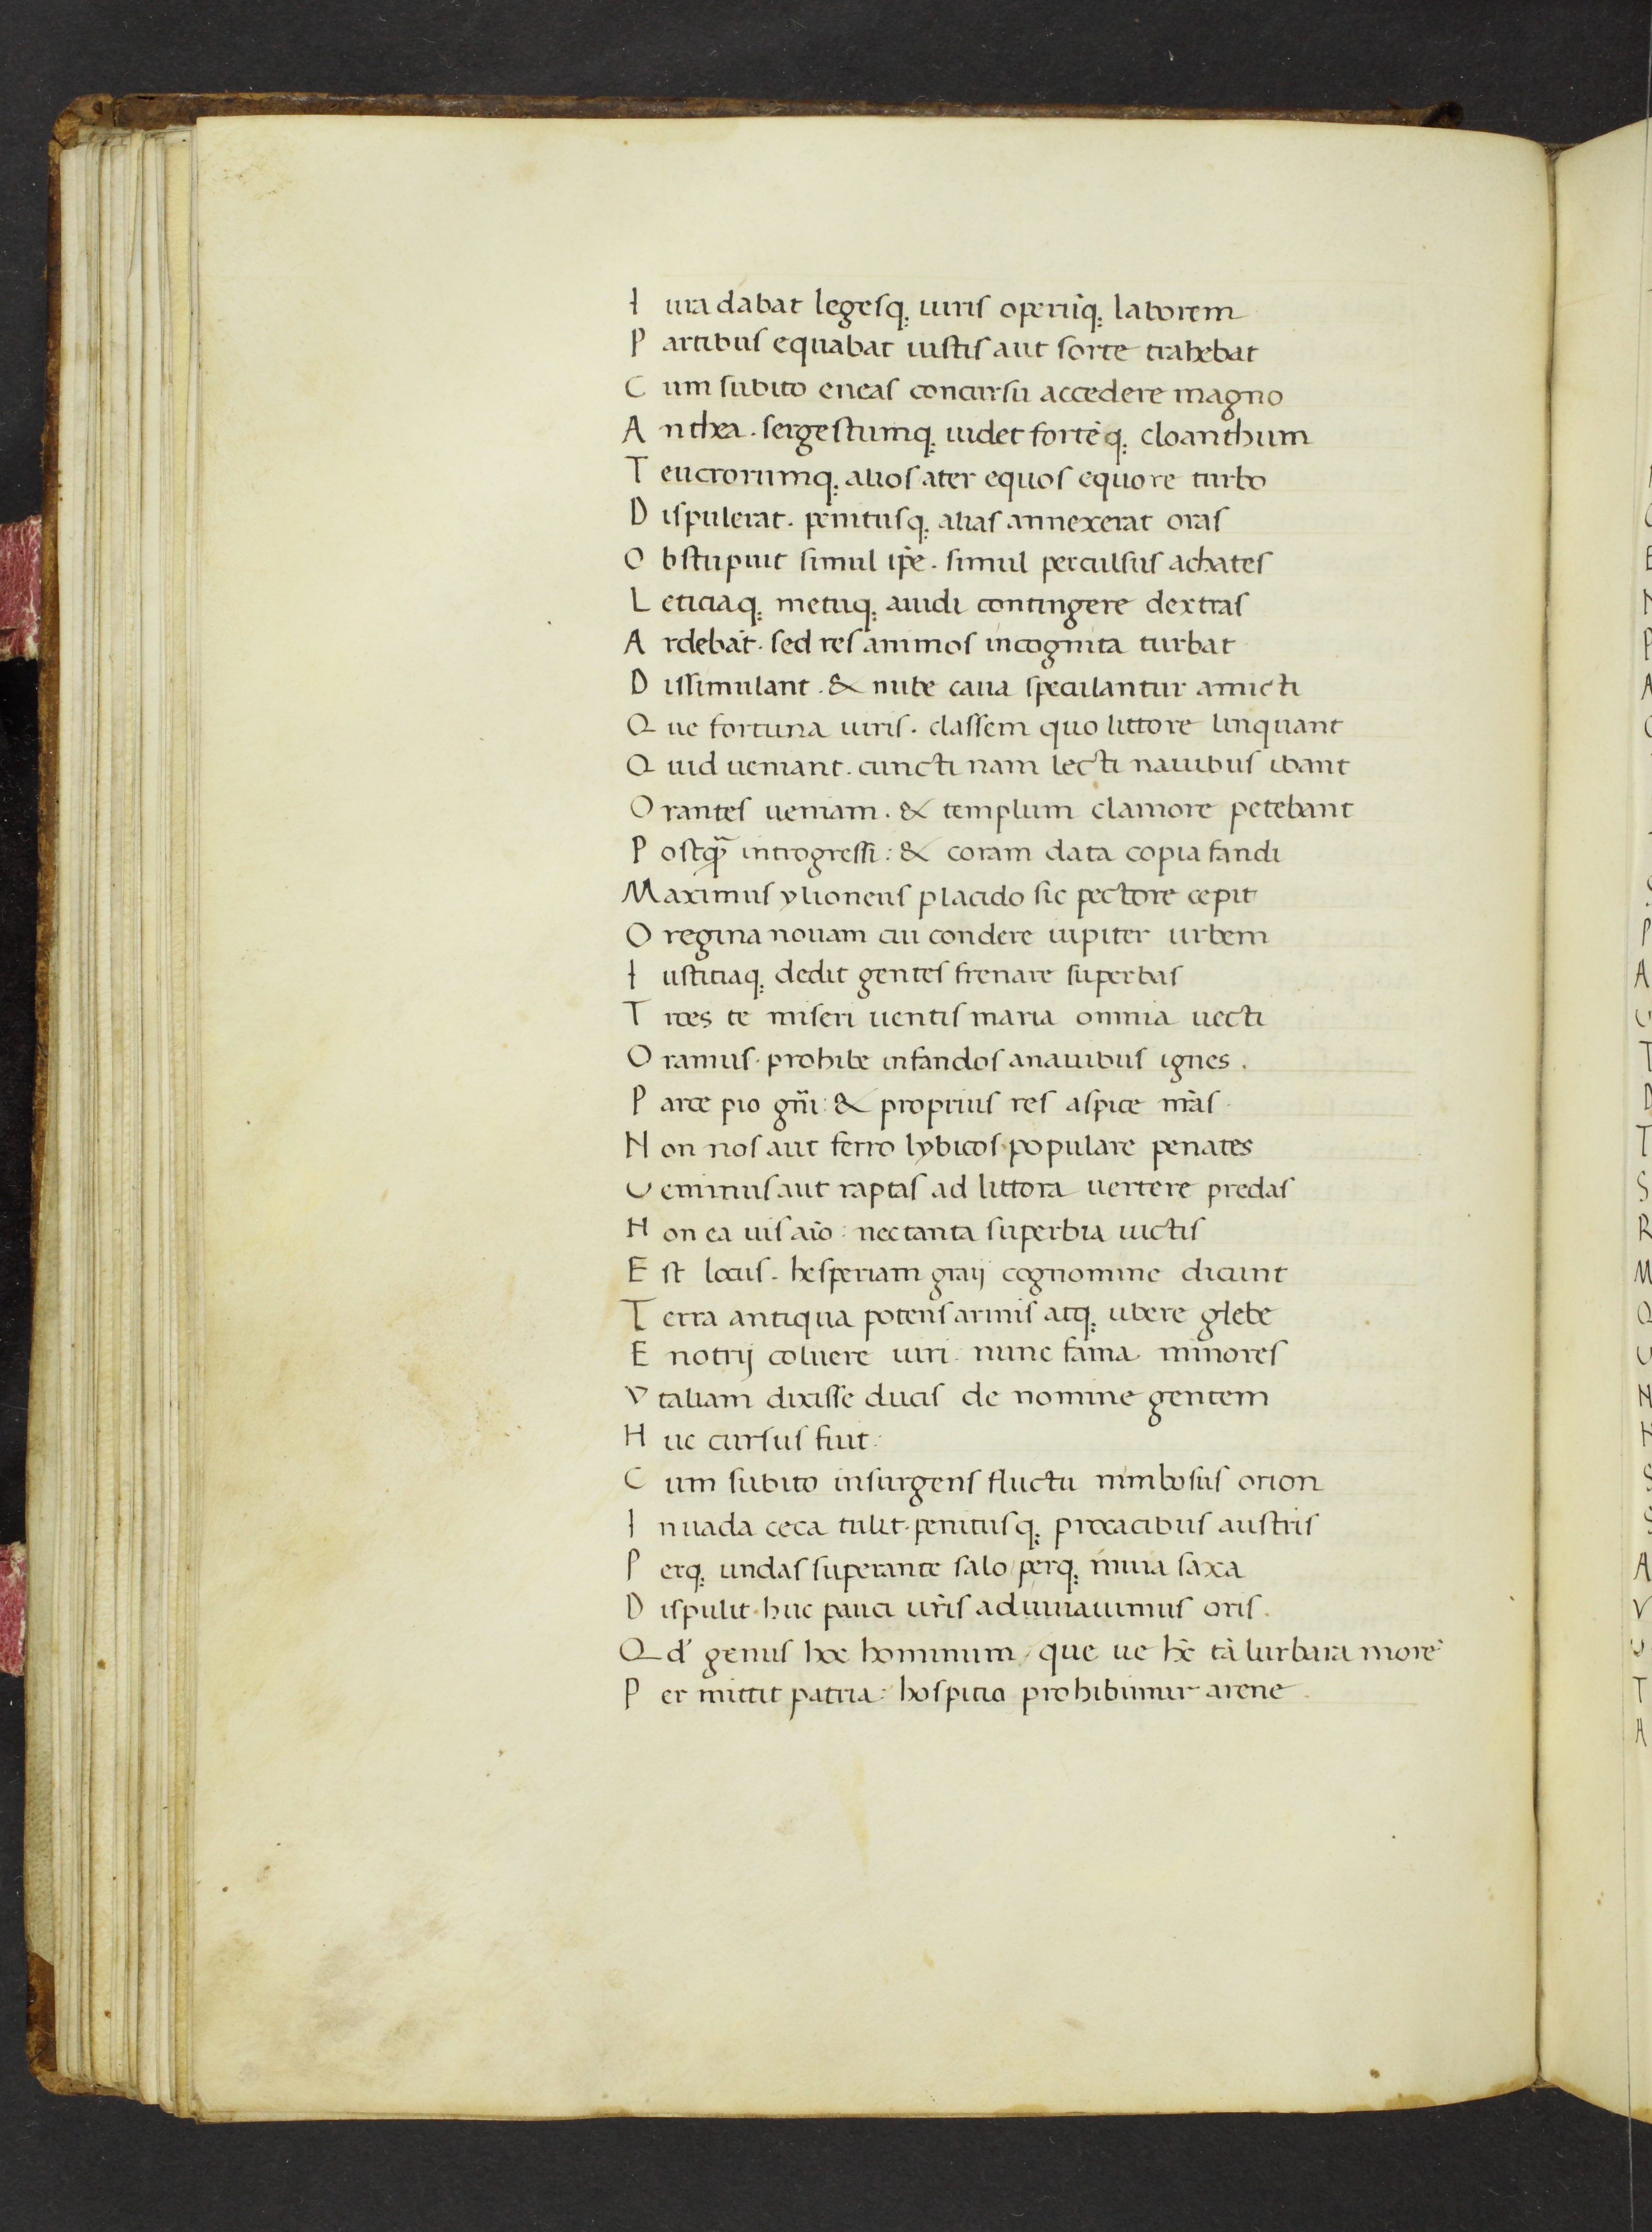 I ura dabat legesq; uiris operiq̄; laborem
P artibus equabat iustis aut sorte trahebat
C um subito eneas concursu accedere magno
A nthea . sergestumq; uidet forteq̄; cloanthum
T eucrorumq; alios ater equos equore turbo
D ispulerat . penitusq; alias annexerat oras
O bstupuit simul ip̄e . simul perculsus achates
L eticiaq; metuq; auidi contingere dextras
A rdebāt . sed res animos incognita turbat
D issimulant . & nube caua speculantur amicti
Q ue fortuna uiris . classem quo littore linquant
Q uid ueniant . cuncti nam lecti nauibus ibant
O rantes ueniam . & templum clamore petebant
P ostq̄ introgressi : & coram data copia fandi
Maximus ylioneus placido sic pectore cepit
O regina nouam cui condere iupiter urbem
I usticiaq; dedit gentes frenare superbas
T roes te miseri uentis maria omnia uecti
O ramus . prohibe infandos anauibus ignes .
P arce pio gn̄i : & proprius res aspice nr̄as .
N on nos aut ferro lybicos populare penates
U enimus aut raptas ad littora uertere predas
N on ea uis aīo : nec tanta superbia uictis
E st locus . hesperiam graij cognomine dicunt
T erra antiqua potens armis atq; ubere glebe
E notrij coluere uiri . nunc fama minores
Y taliam dixisse ducis de nomine gentem
H uc cursus fuit :
C um subito insurgens fluctu nimbosus orion
I nuada ceca tulit . penitusq; procacibus austris
P erq; undas superante salo / perq; inuia saxa
D ispulit . huc pauci ur̄is aduuauimus oris .
Q d' genus hoc hominum / que ue hc̄ tā lurbara more
P er mittit patria : hospitio prohibimur arene .